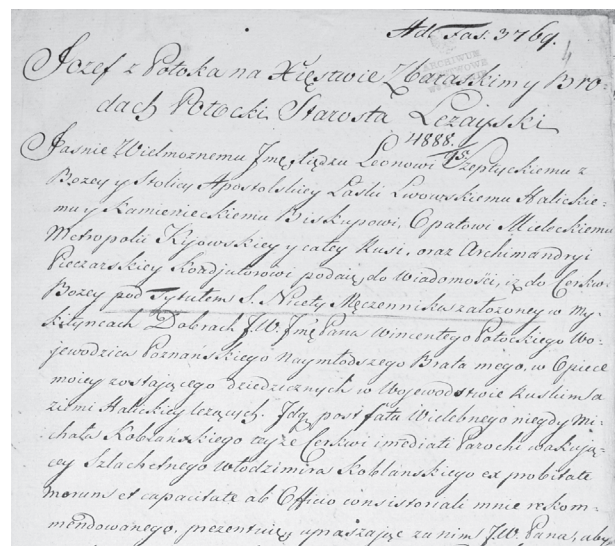 Adt Fas. 3769.
4
ARCHIWUM
Jozef z Potoka na Xięstwie Zbaraskim y Bro-
dach Potocki Starosta Lezayski
4888.
75
Jasnie Wielmoznemu Jmę Xiędzu Leonowi Szeptyckiemu z
Bozey y Stolicy Apostolskiey Łaski Lwowskiemu Halickie-
mu y Kamienieckiemu Biskupowi, Opatowi Mieleckiemu
Metropolii Kijowskiey y całey Rusi, oraz Archimandryi
Pieczarskiey Koadjutorowi podaię do Wiadomości, iż do Cerkwi
Bozey pod Tytułem S. Nicety Męczennika załozoney w My-
kityncach Dobrach J.W. Jmę Pana Wincentego Potockiego Wo-
jewodzica Poznańskiego Naymłodszego Brata mego, w Opiece
moiey zostaiącego dziedzicznych w Woiewodstwie Ruskim a
ziemi Halickiey lezących. Jdq. post fata Wielebnego niegdy Mi-
chała Koblańskiego teyże Cerkwi imediati Parochi wakuią-
cey Szlachetnego Włodzimira Koblańskiego ex probitate
morum et capacitate ab Officio consistoriali mnie rekom-
mendowanego, prezentuię, upraszaiąc za nim J.W. Pana, aby